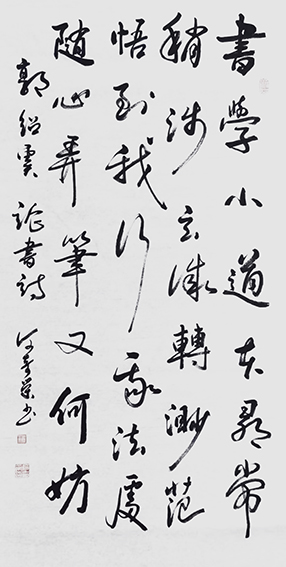 書學小道本尋常
稍涉玄微轉渺茫
悟到我行我法處
随心弄筆又何妨
郭紹虞論書詩